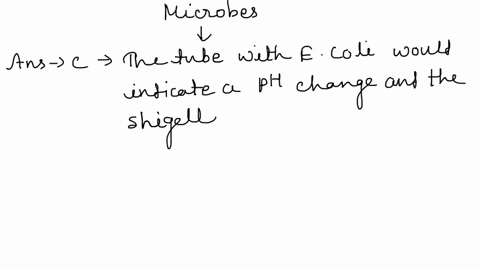 Microbes
↓
Ans → C → The tube with E. coli would
inticate a pH change and the
shigell